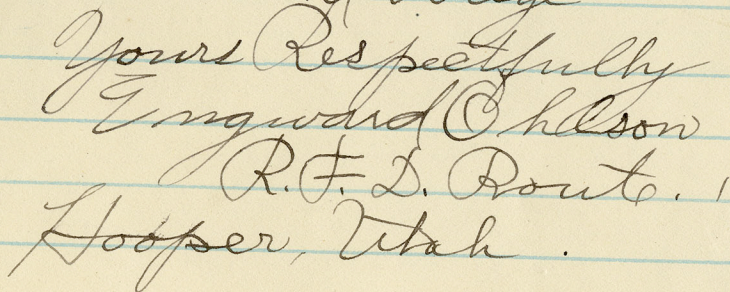 Yours Respectfully
Engward Ohlson
R.F.D. Route. 1
Hooper, Utah.